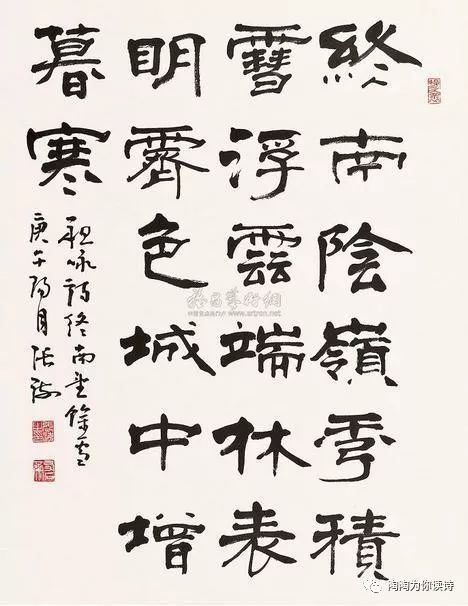 終南陰嶺秀積
雪浮雲端林表
明霽色城中增
暮寒
祖咏詩終南望餘雪
庚午陽月張
雅昌藝術網
www.artron.net
陶陶为你读诗